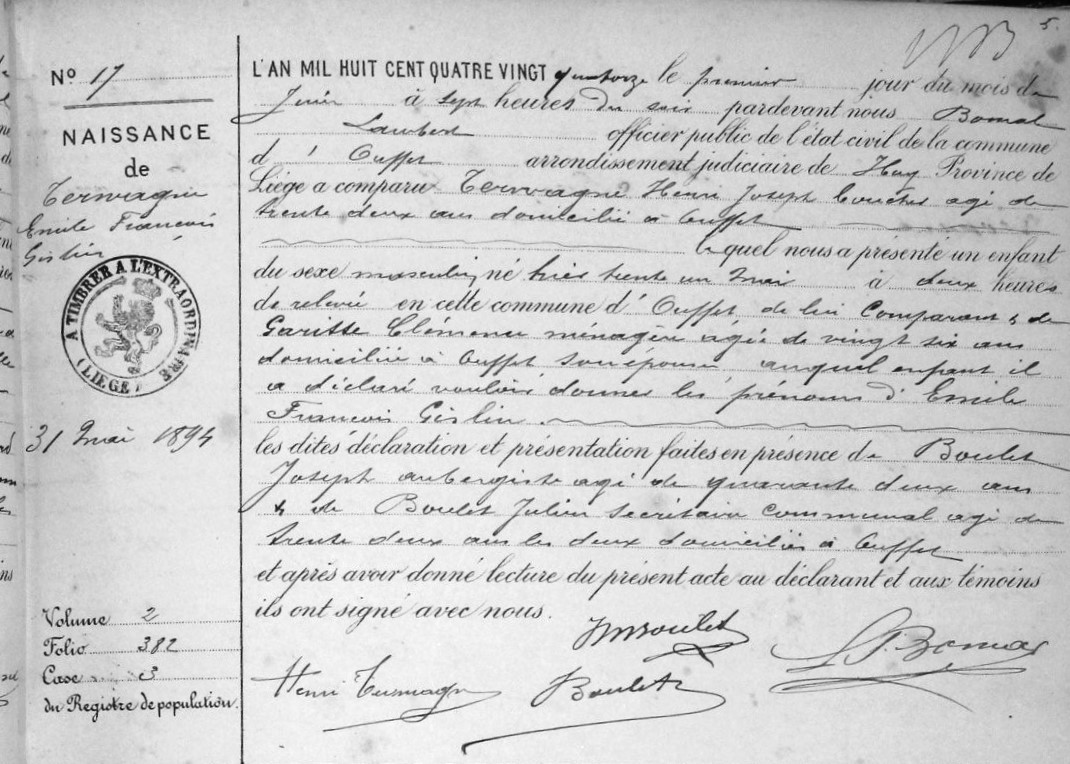 5.
Nº 17
NAISSANCE
de
Tervagne
Emile François
Gislin
A TIMBRER A L'EXTRAORDINAIRE
(LIÈGE)
31 Mai 1894
Volume 2
Folio 382
Case 3
du Registre de population.
L'AN MIL HUIT CENT QUATRE VINGT quatorze le premier jour du mois de
Juin à sept heures du soir pardevant nous Bomal
Lambert officier public de l'état civil de la commune
d'Ouffet arrondissement judiciaire de Huy Province de
Liége a comparu Tervagne Henri Joseph boucher agé de
trente deux ans domicilié à Ouffet
lequel nous a présenté un enfant
du sexe masculin, né hier trente un mai à deux heures
de relevée en cette commune d'Ouffet de lui comparant & de
Garitte Clémence ménagère agée de vingt six ans
domiciliée à Ouffet son épouse auquel enfant il
a déclaré vouloir donner les prénoms d'Emile
François Gislin.
les dites déclaration et présentation faites en présence de Boulet
Joseph aubergiste agé de quarante deux ans
& de Boulet Julien secrétaire communal agé de
trente deux ans les deux domiciliés à Ouffet
et après avoir donné lecture du présent acte au déclarant et aux témoins
ils ont signé avec nous.
Boulet
L. Bomal
Henri Tervagne Boulet